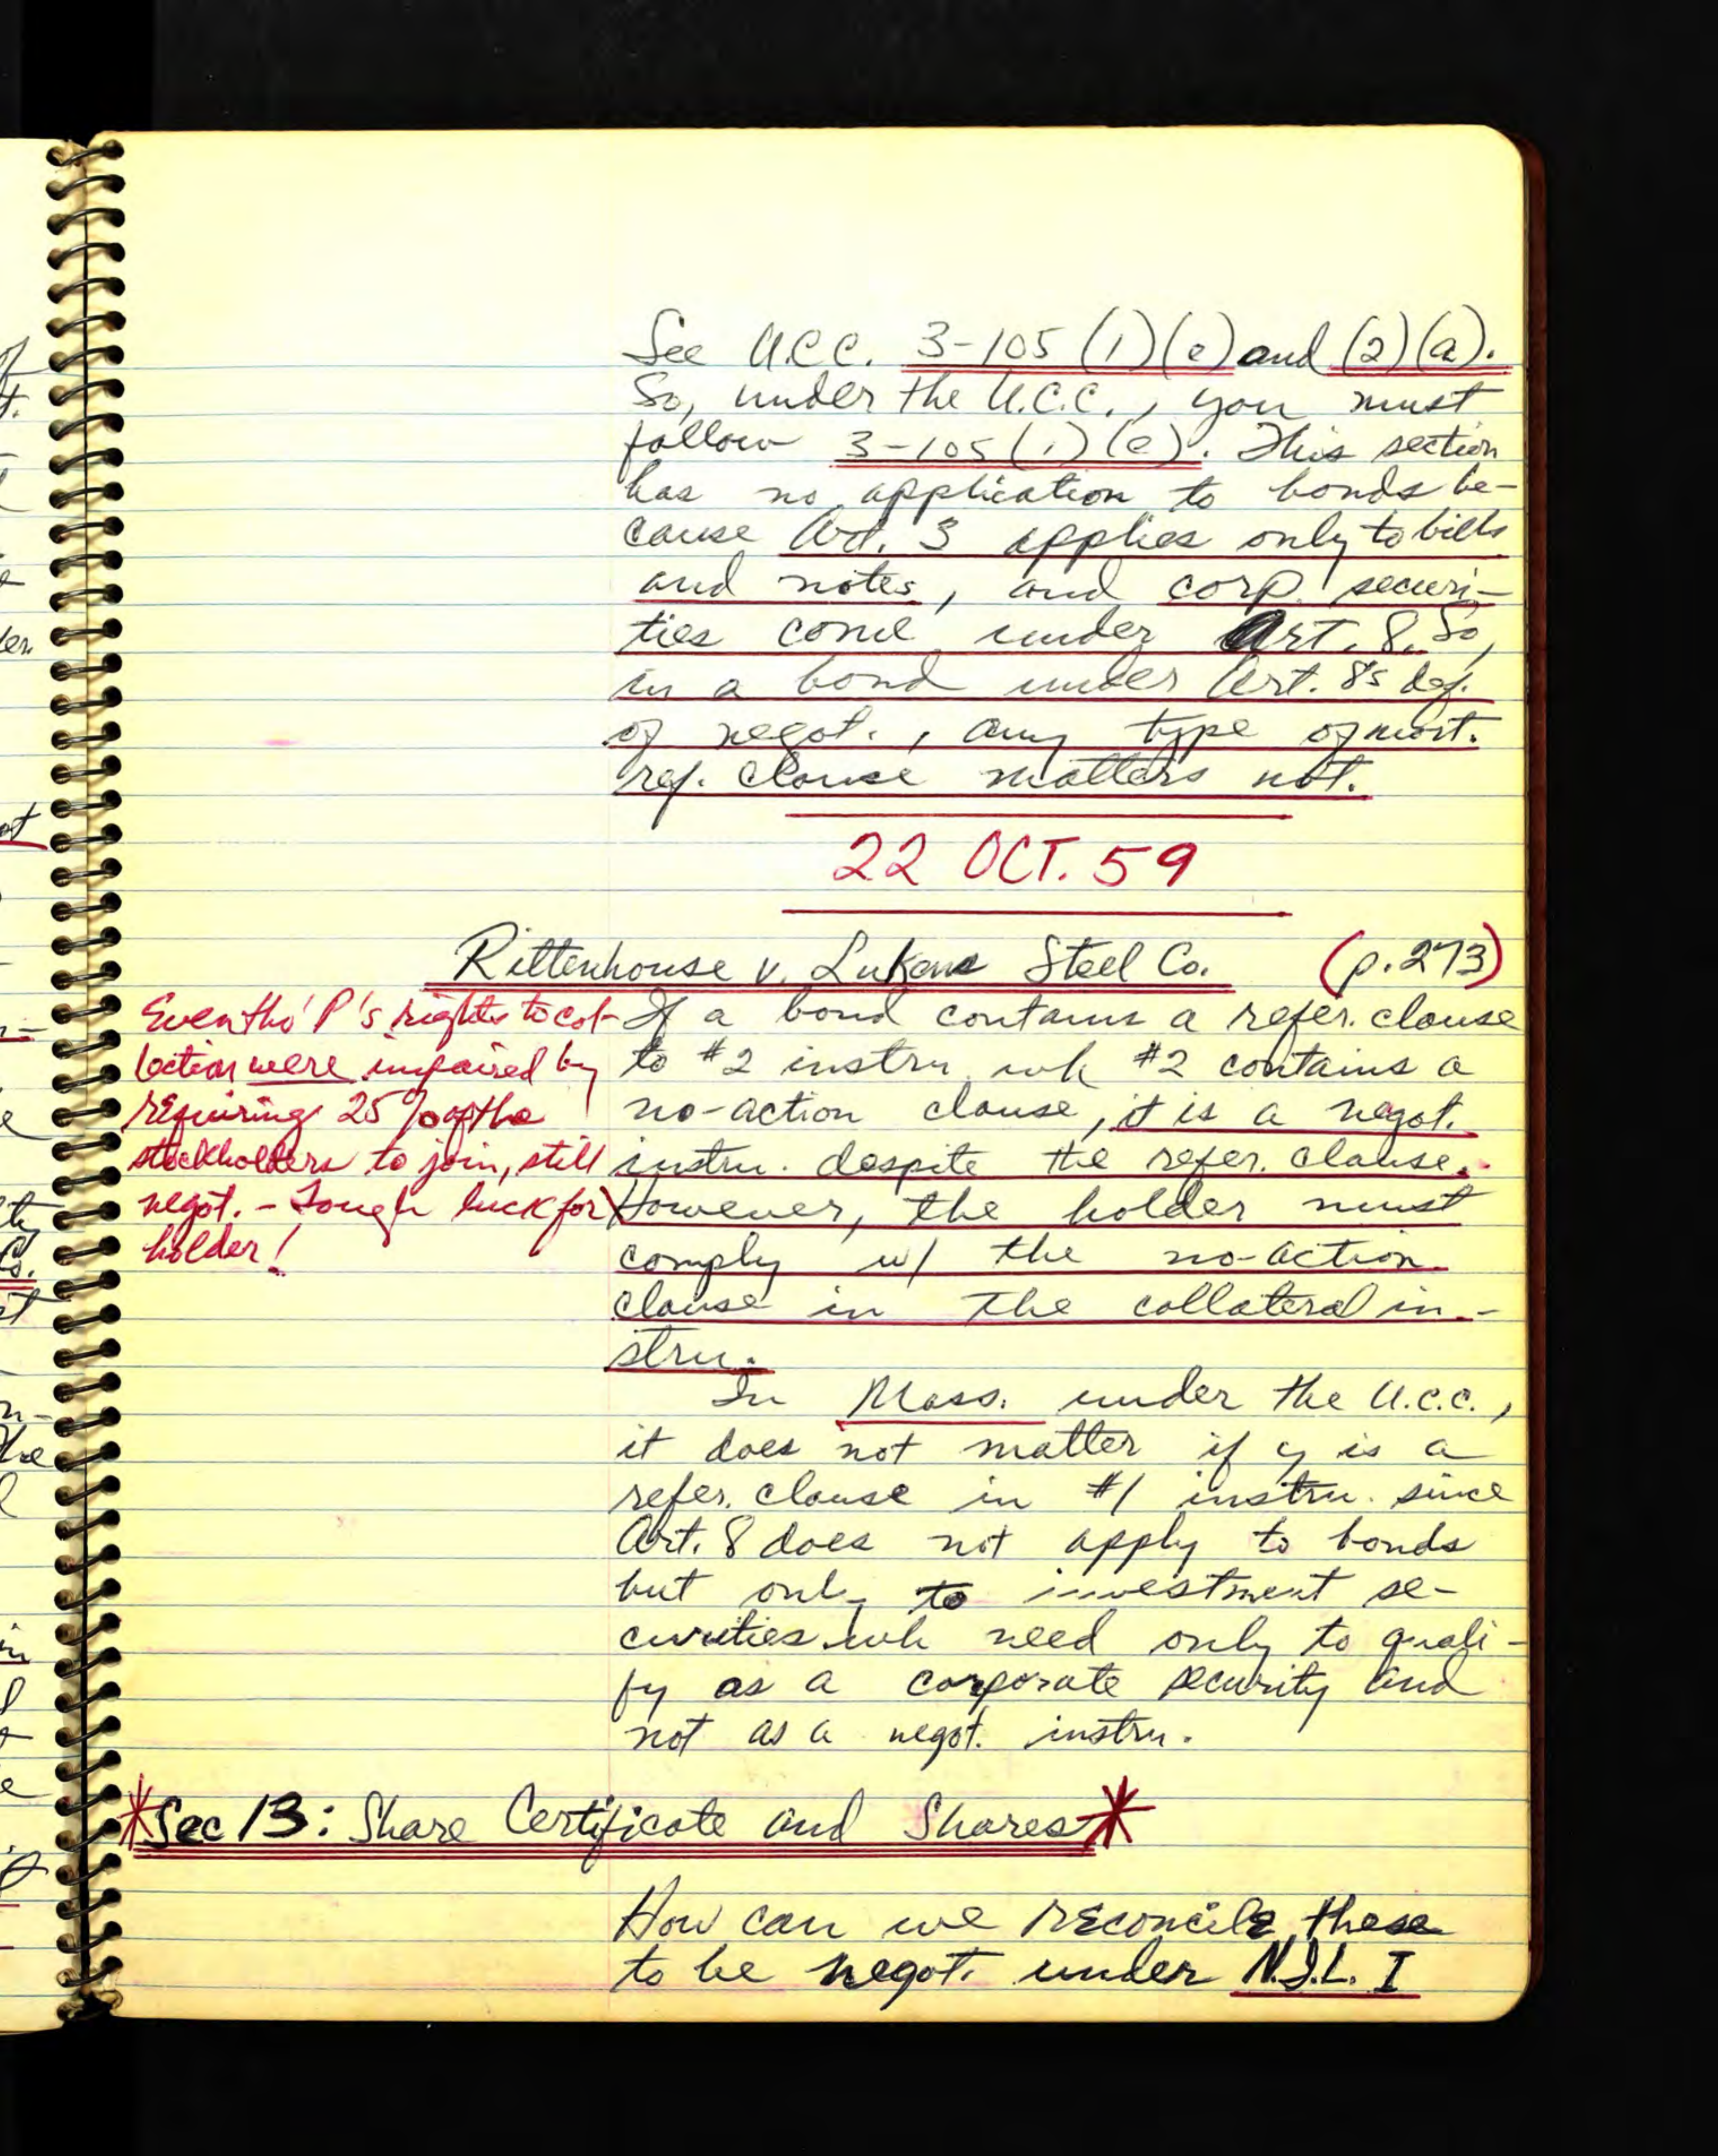 See U.C.C. 3-105 (1)(e) and (2)(a).
So, under the U.C.C., you must
follow 3-105(1)(e). This section
has no application to bonds be-
cause Art. 3 applies only to bills
and notes, and corp. securi-
ties come under Art. 8. So,
in a bond under Art. 8's def.
of negot., any type of mort.
ref. clause matters not.
22 OCT. 59
Rittenhouse v. Lukens Steel Co. (p.273)
Eventho' P's rights to col-
lection were impaired by
requiring 25% of the
stockholders to join, still
negot. - Tough luck for
holder!
If a bond contains a refer. clause
to #2 instru wh #2 contains a
no-action clause, it is a negot.
instru. despite the refer. clause.
However, the holder must
comply w/ the no-action
clause in the collateral in-
stru.
In Mass. under the U.C.C.,
it does not matter if y is a
refer. clause in #1 instru. since
Art. 8 does not apply to bonds
but only to investment se-
curities wh need only to quali-
fy as a corporate security and
not as a negot. instru.
*Sec 13: Share Certificate and Shares*
How can we reconcile these
to be negot. under N.I.L. I